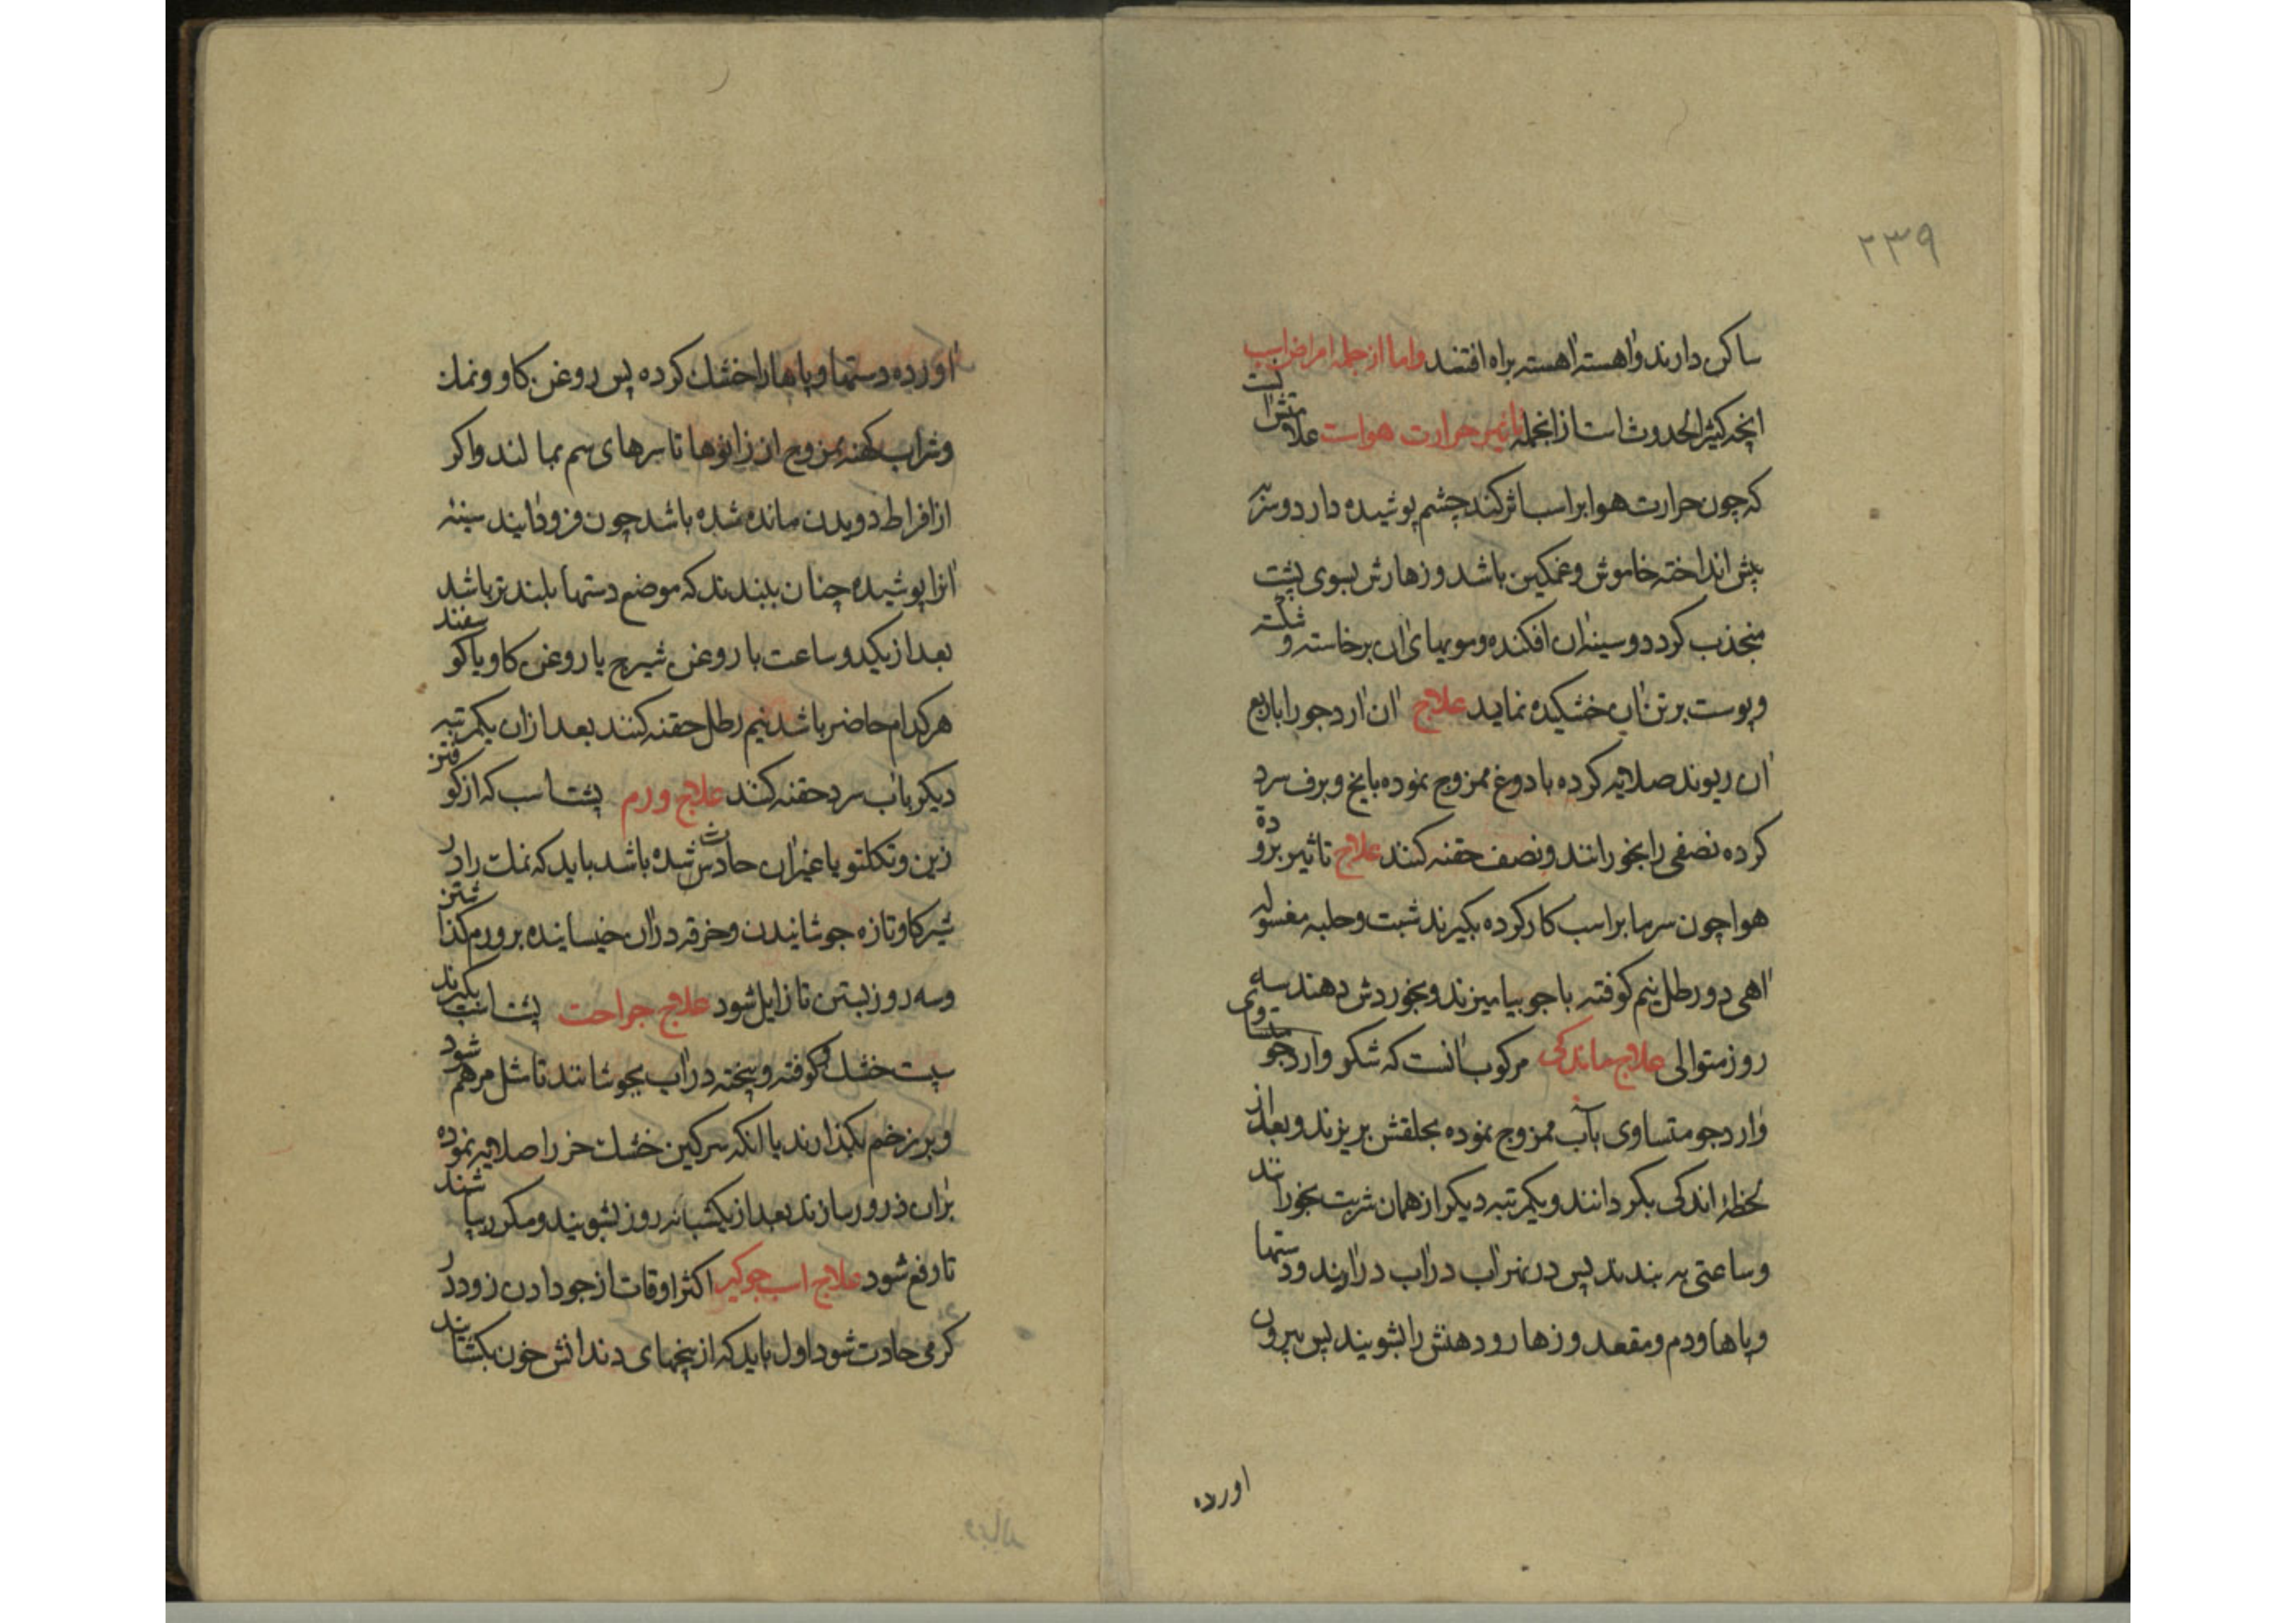 ۲۳۹
ساکن دارند و اهسته اهسته براه افتند واما از جمله امراض اسب
انچه کثیر الحدوث است از انجمله تاثیر حرارت هواست علامتش انست
که چون حرارت هوا بر اسب اثر کند چشم پوشیده دارد و سر به
پیش انداخته خاموش و غمکین باشد و زهارش بسوی پشت
منجذب کردد و سینه ان افکنده و مویهای ان برخاسته و شکسته
و پوست بر تن ان خشکیده نماید علاج ان ارد جو را با ربع
ان ریوند صلایه کرده با دوغ ممزوج نموده با یخ و برف سرد
کرده نصفی را بخورانند و نصف حقنه کنند علاج تاثیر بروده
هوا چون سرما بر اسب کار کرده بکیرند شبت و حلبه مغسوله
اهی دو رطل نیم کوفته با جو بیامیزند و بخوردش دهند سه
روز متوالی علاج ماندکی مرکوب انست که شکر و ارد جو متساوی
وارد جو متساوی بآب ممزوج نموده بحلقش بریزند و بعد از
لحظهٔ اندکی بکردانند و یکمرتبه دیکر از همان شربت بخورانند
و ساعتی به بندند پس در نهر اب در اب در اورند و دستها
و پاها و دم و مقعد و زهار و دهنش را بشویند پس بیرون
اورده
اورده دستها و پاها را خشک کرده پس روغن کاو و نمک
و شراب کهنه ممزوج از زانوها تا سرهای سم بمالند و اکر
از افراط دویدن مانده شده باشد چون فرود ایند سینه
انرا پوشیده چنان ببندند که موضع دستها بلندتر باشد
بعد از یکدو ساعت با روغن شیرج یا روغن کاو یا کوسفند
هر کدام حاضر باشد نیم رطل حقنه کنند بعد از ان یکمرتبه
دیکر باب سرد حقنه کنند علاج ورم پشت اسب که از کوفتن
زین و تکلتو یا غیر ان حادث شده باشد باید که نمک را در
شیر کاو تازه جوشانیدن و خرقه در ان خیسانیده بر ورم کذاشتن
و سه روز بستن تا زایل شود علاج جراحت پشت اسب بکیرند
پست خشک کوفته و پخته در اب بجوشانند تا مثل مرهم شود
و بر زخم بکذارند یا انکه سرکین خشک خر را صلایه نموده
بران ذرور سازند بعد از یکشبانه روز بشویند و مکرر بپاشند
تا رفع شود علاج اسب جوکیر اکثر اوقات از جو دادن زود در
کرمی حادث شود اول باید که از بیخهای دندانش خون بکشایند